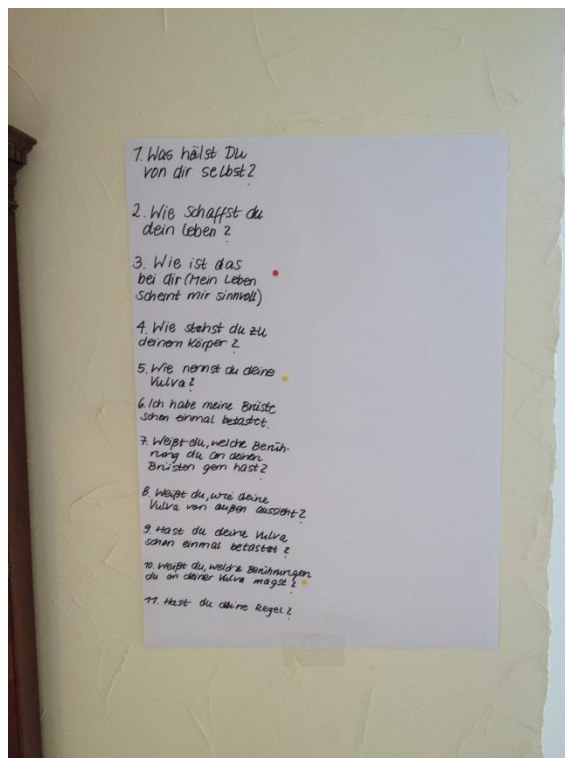 1. Was hälst Du
von dir selbst?
2. Wie schaffst du
dein Leben?
3. Wie ist das
bei dir (Mein Leben
scheint mir sinnvoll)
4. Wie stehst du zu
deinem Körper?
5. Wie nennst du deine
Vulva?
6. Ich habe meine Brüste
schon einmal betastet.
7. Weißt du, welche Berüh-
rung du an deinen
Brüsten gern hast?
8. Weißt du, wie deine
Vulva von außen aussieht?
9. Hast du deine Vulva
schon einmal betastet?
10. Weißt du, welche Berührungen
du an deiner Vulva magst?
11. Hast du deine Regel?